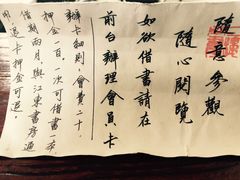 隨意參觀
隨心閱覽
如欲借書請在
前台辦理會員卡
辦卡細則：會費二十，
押金一百。一次可借書一本
借期兩月，與江東書房通
用，退卡押金可退。